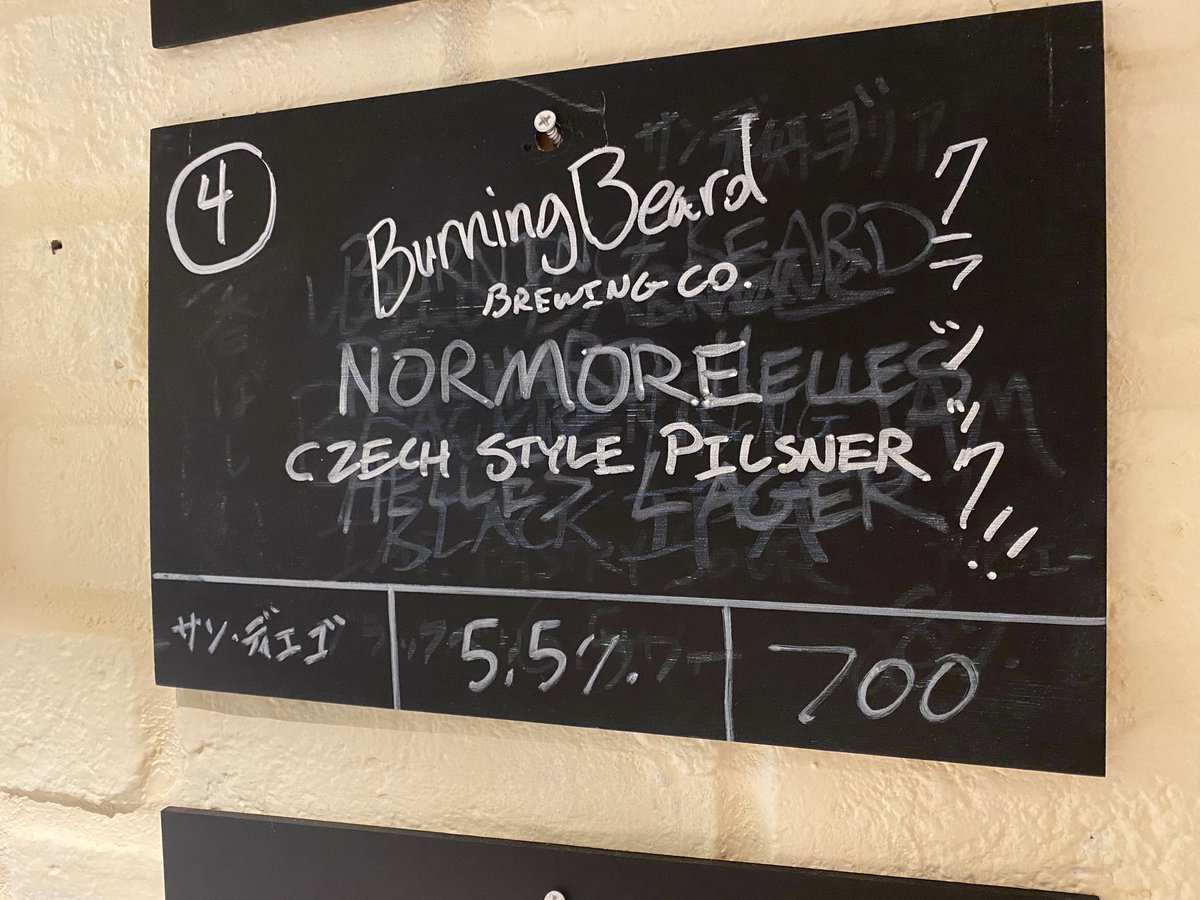 4
Burning Beard
BREWING CO.
NORMORE
CZECH STYLE PILSNER
クラシック!!
サン・ディエゴ
5.5%
700